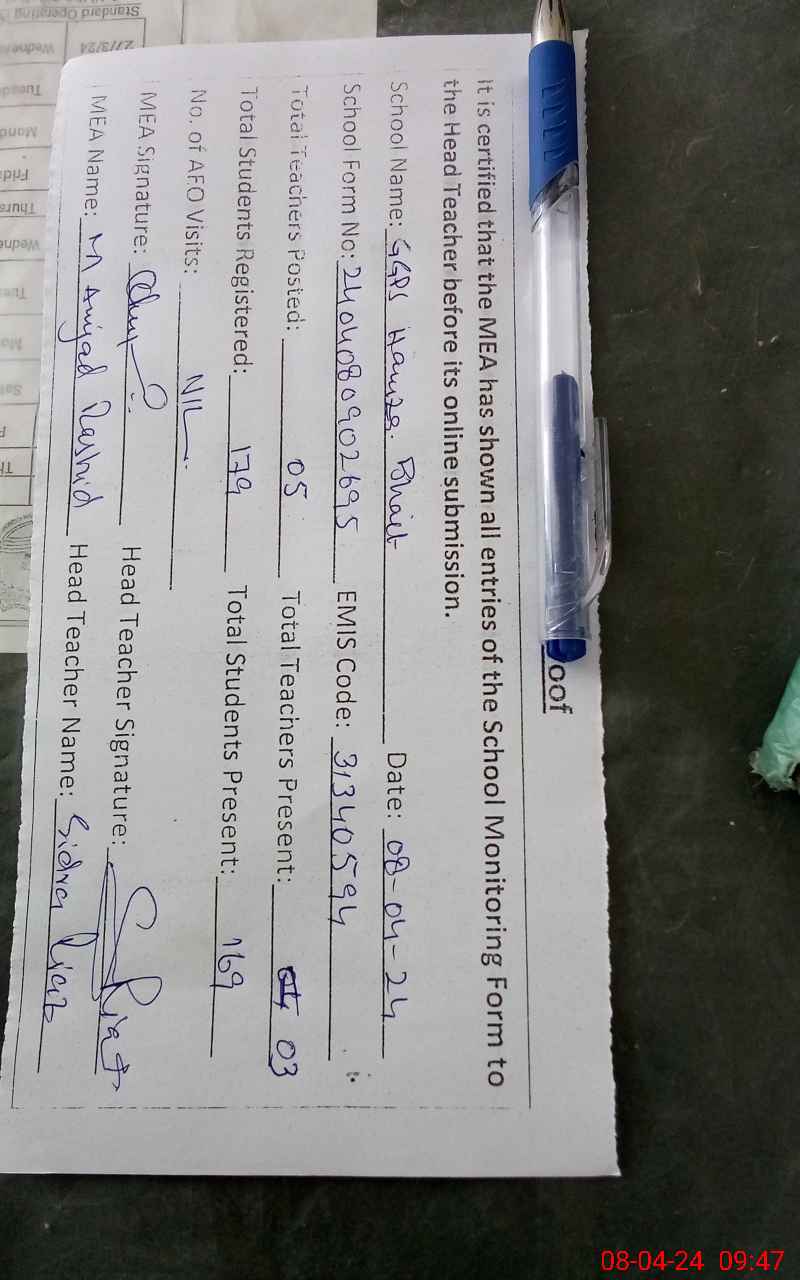 oof
It is certified that the MEA has shown all entries of the School Monitoring Form to
the Head Teacher before its online submission.
School Name: GGPS Hamza Bhait Date: 08-04-24
School Form No: 2404080902695 EMIS Code: 31340594
Total Teachers Posted: 05 Total Teachers Present: 03
Total Students Registered: 179 Total Students Present: 169
No. of AEO Visits: NIL
MEA Signature: Head Teacher Signature:
MEA Name: M Amjad Rashid Head Teacher Name: Sidra Riaz
Standard Operating
27/3/24 Wednes
Tuesda
Mond
Frida
Thurs
Wedne
Tues
Mo
Sat
Th
08-04-24 09:47